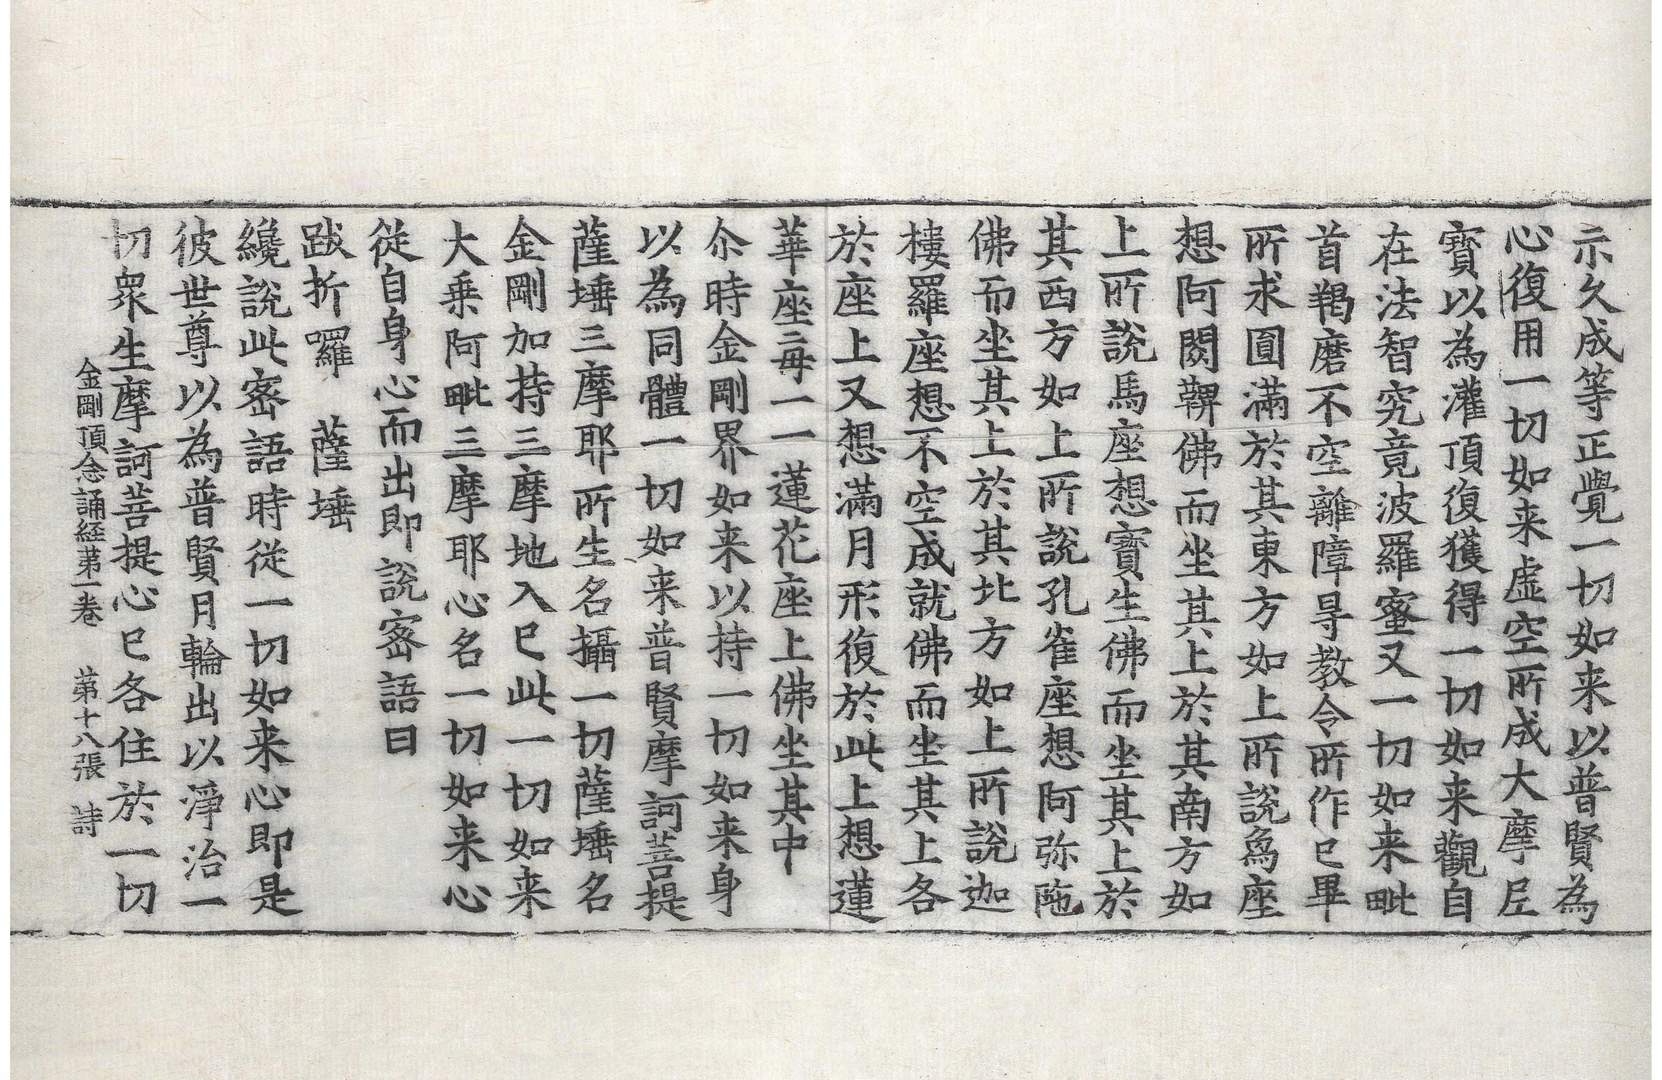 示久成等正覺一切如来以普賢為
心復用一切如来虛空所成大摩尼
寶以為灌頂復獲得一切如来觀自
在法智究竟波羅蜜又一切如来毗
首羯磨不空離障㝵教令所作已畢
所求圓滿於其東方如上所說為座
想阿閦鞞佛而坐其上於其南方如
上所說馬座想寶生佛而坐其上於
其西方如上所說孔雀座想阿弥陁
佛而坐其上於其北方如上所說迦
樓羅座想不空成就佛而坐其上各
於座上又想滿月形復於此上想蓮
華座毎一一蓮花座上佛坐其中
尒時金剛界如来以持一切如来身
以為同體一切如来普賢摩訶菩提
薩埵三摩耶所生名攝一切薩埵名
金剛加持三摩地入已此一切如来
大乗阿毗三摩耶心名一切如来心
從自身心而出即說密語曰
跋折囉　薩埵
纔說此密語時從一切如来心即是
彼世尊以為普賢月輪出以淨治一
切衆生摩訶菩提心已各住於一切
金剛頂念誦経苐一卷　苐十八張　詩